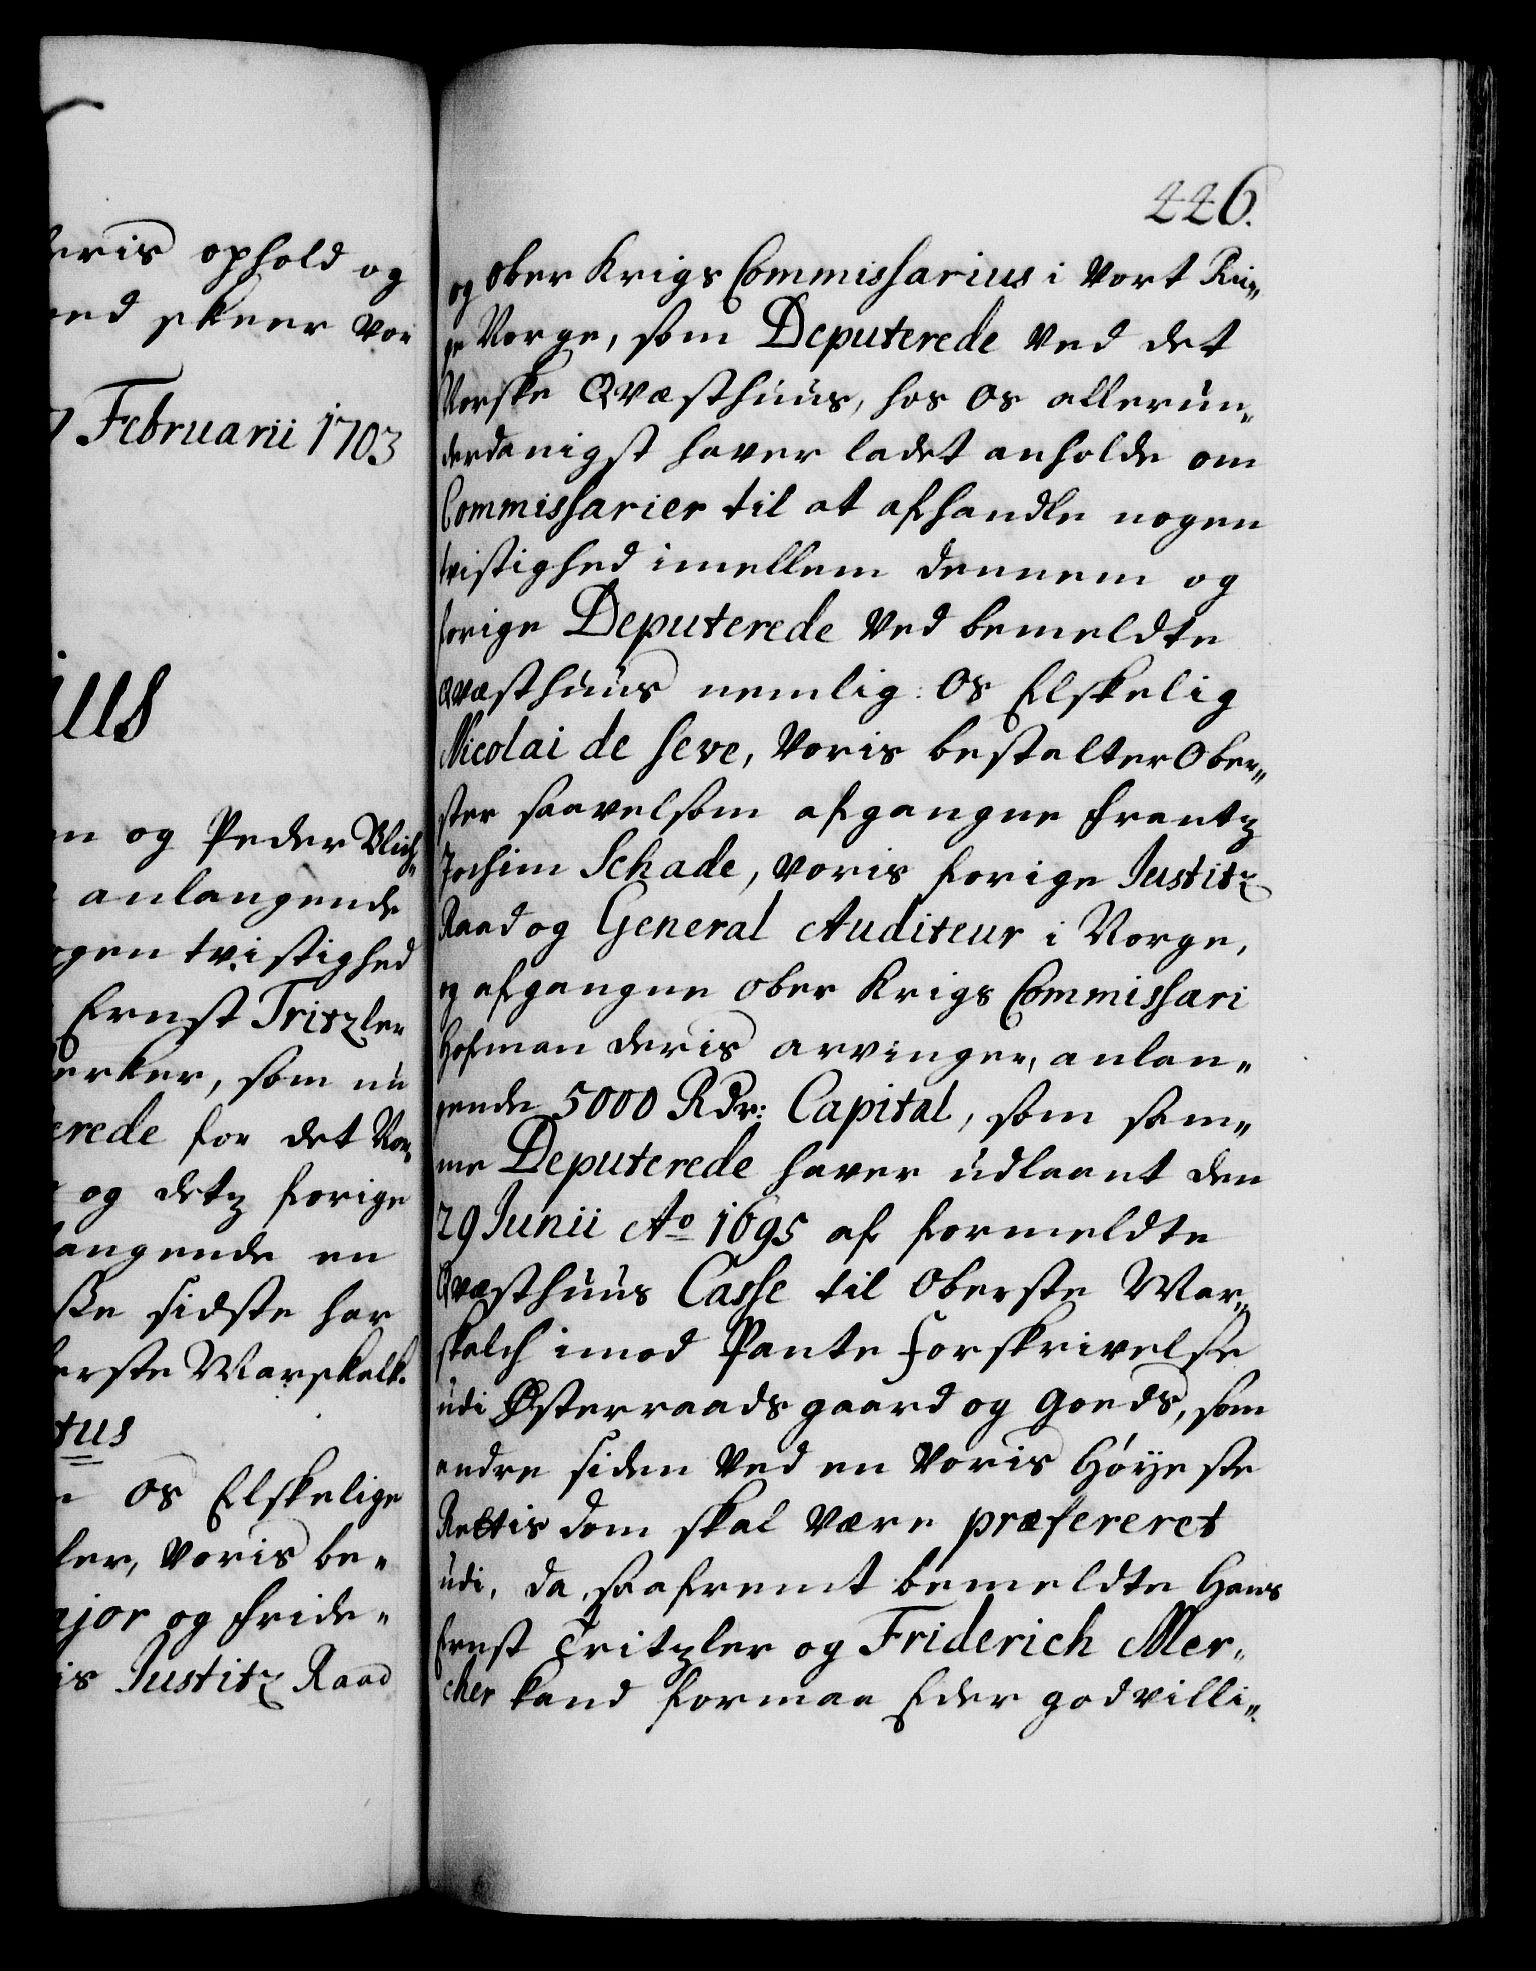 eris ophold og
ed skeer vor
7 Februarii 1703
ius
en og Peder Ulich„
anlangende
ogen tvistighed
Ernst Tritzler
erker, som nu
erede for det Nor„
og detz forige
langende en
ste sidste har
erste Marskalk.
tus
Os Elskelige
ler, voris be„
ajor og Fride„
is Justitz Raad
446.
og Ober Krigs Commissarius i vort Rii„
ge Norge, som Deputerede ved det
Norske Qvæsthuus, hos os allerun„
derdanigst haver ladet anholde om
Commissarier til at afhandle nogen
tvistighed imellem dennem og
forige Deputerede ved bemeldte
Qvæsthuus nemlig: Os Elskelig
Nicolai de Seve, voris bestalter Ober„
ster saavelsom afgangne Frantz
Jochim Schade, voris forige Justitz
Raad og General Auditeur i Norge,
og afgangne Ober Krigs Commissari
Hofman deris arvinger, anlan„
gende 5000 Rdr: Capital, som sam„
me Deputerede haver udlaant den
29 Junii Ao 1695 af formeldte
Qvæsthuus Casse til Oberste Mar„
skalch imod Pante Forskrivelse
udi Østerraads gaard og Goeds, som
andre siden ved en voris Høyeste
Rettis dom skal være præfereret
udi, da, saafremt bemeldte Hans
Ernst Tritzler og Friderich Mer„
cker kand formaa Eder godvilli„